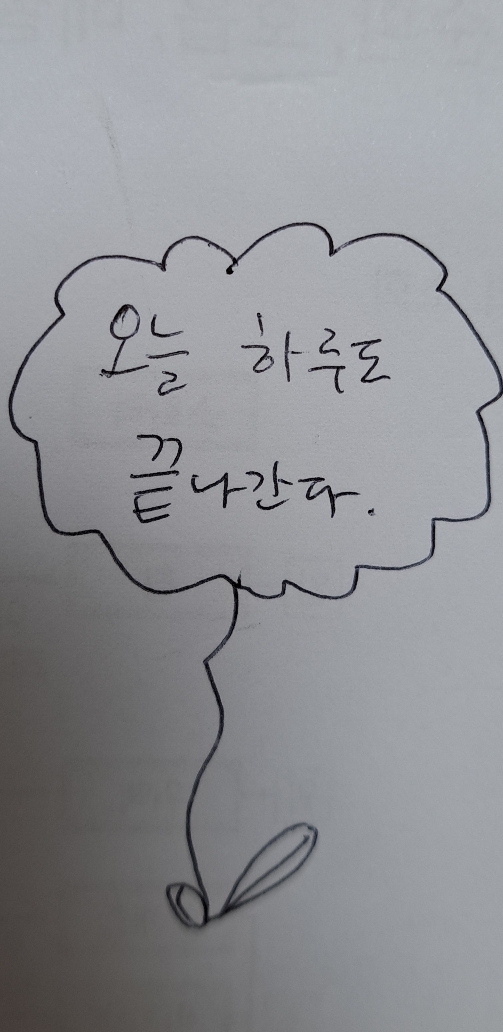 오늘 하루도
끝나간다.